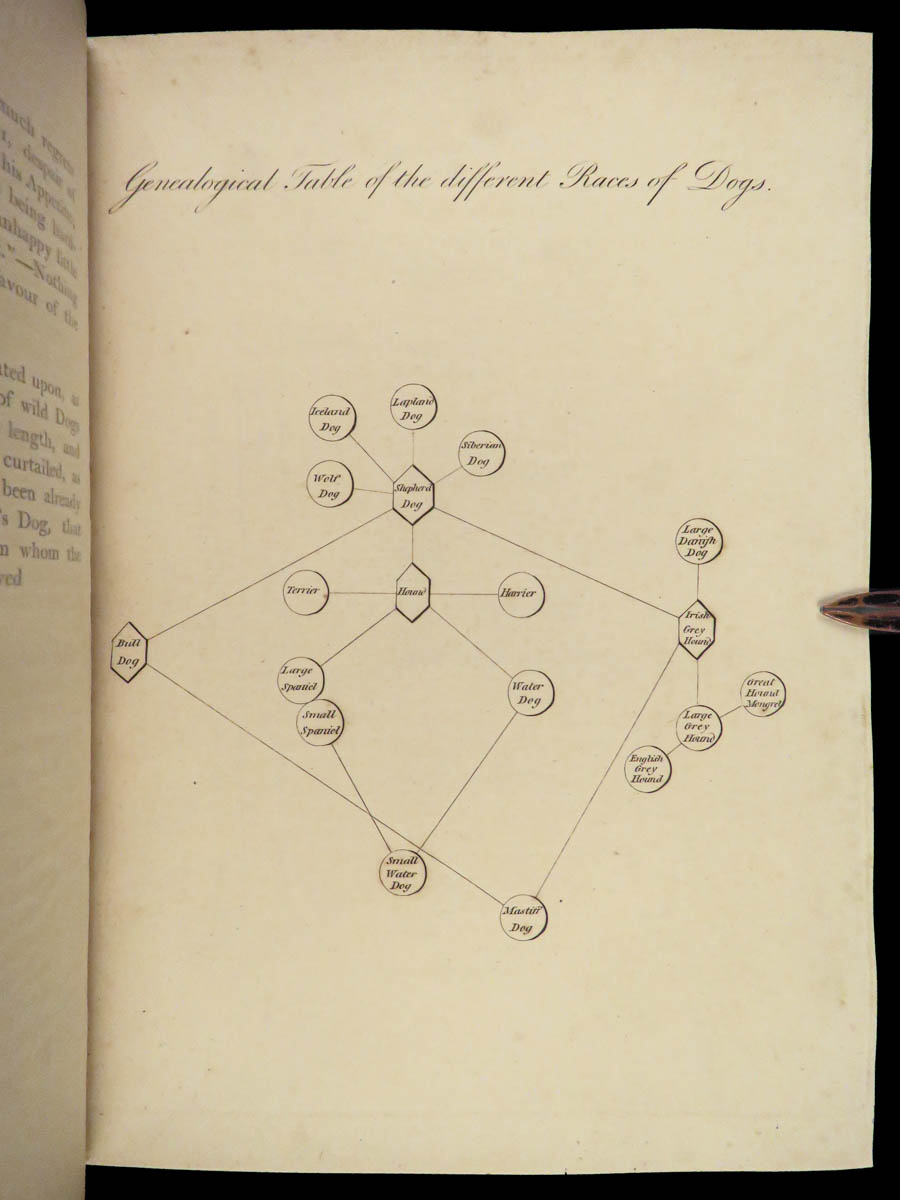 much regret
despair of
his Appetite,
being
unhappy little
."—Nothing
avour of the
ated upon, as
of wild Dogs
length, and
curtailed, as
been already
's Dog, that
m whom the
ved
Genealogical Table of the different Races of Dogs.
Iceland
Dog
Lapland
Dog
Siberian
Dog
Wolf
Dog
Shepherd
Dog
Large
Danish
Dog
Terrier
Hound
Harrier
Irish
Grey
Hound
Bull
Dog
Large
Spaniel
Small
Spaniel
Water
Dog
Great
Hound
Mongrel
Large
Grey
Hound
English
Grey
Hound
Small
Water
Dog
Mastiff
Dog